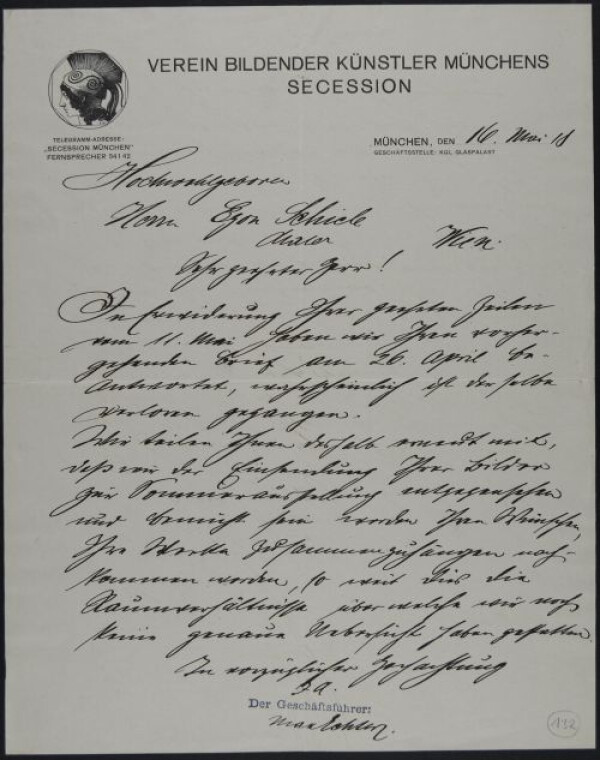 VEREIN BILDENDER KÜNSTLER MÜNCHENS
SECESSION
TELEGRAMM-ADRESSE:
„SECESSION MÜNCHEN"
FERNSPRECHER 54142
MÜNCHEN, DEN 16. Mai 18
GESCHÄFTSSTELLE: KGL. GLASPALAST
Hochwohlgeboren
Herrn Egon Schiele
Maler Wien.
Sehr geehrter Herr!
In Erwiderung Ihrer geehrten Zeilen
vom 11. Mai haben wir Ihren vorher-
gehenden Brief am 26. April be-
antwortet, wahrscheinlich ist derselbe
verloren gegangen.
Wir teilen Ihnen deshalb erneut mit,
daß wir der Einsendung Ihrer Bilder
zur Sommerausstellung entgegensehen
und bemüht sein werden Ihren Wünschen,
Ihre Werke zusammenzuhängen nach-
kommen werden, so weit dies die
Raumverhältnisse über welche wir noch
keine genaue Uebersicht haben gestatten.
In vorzüglicher Hochachtung
Der Geschäftsführer:
132